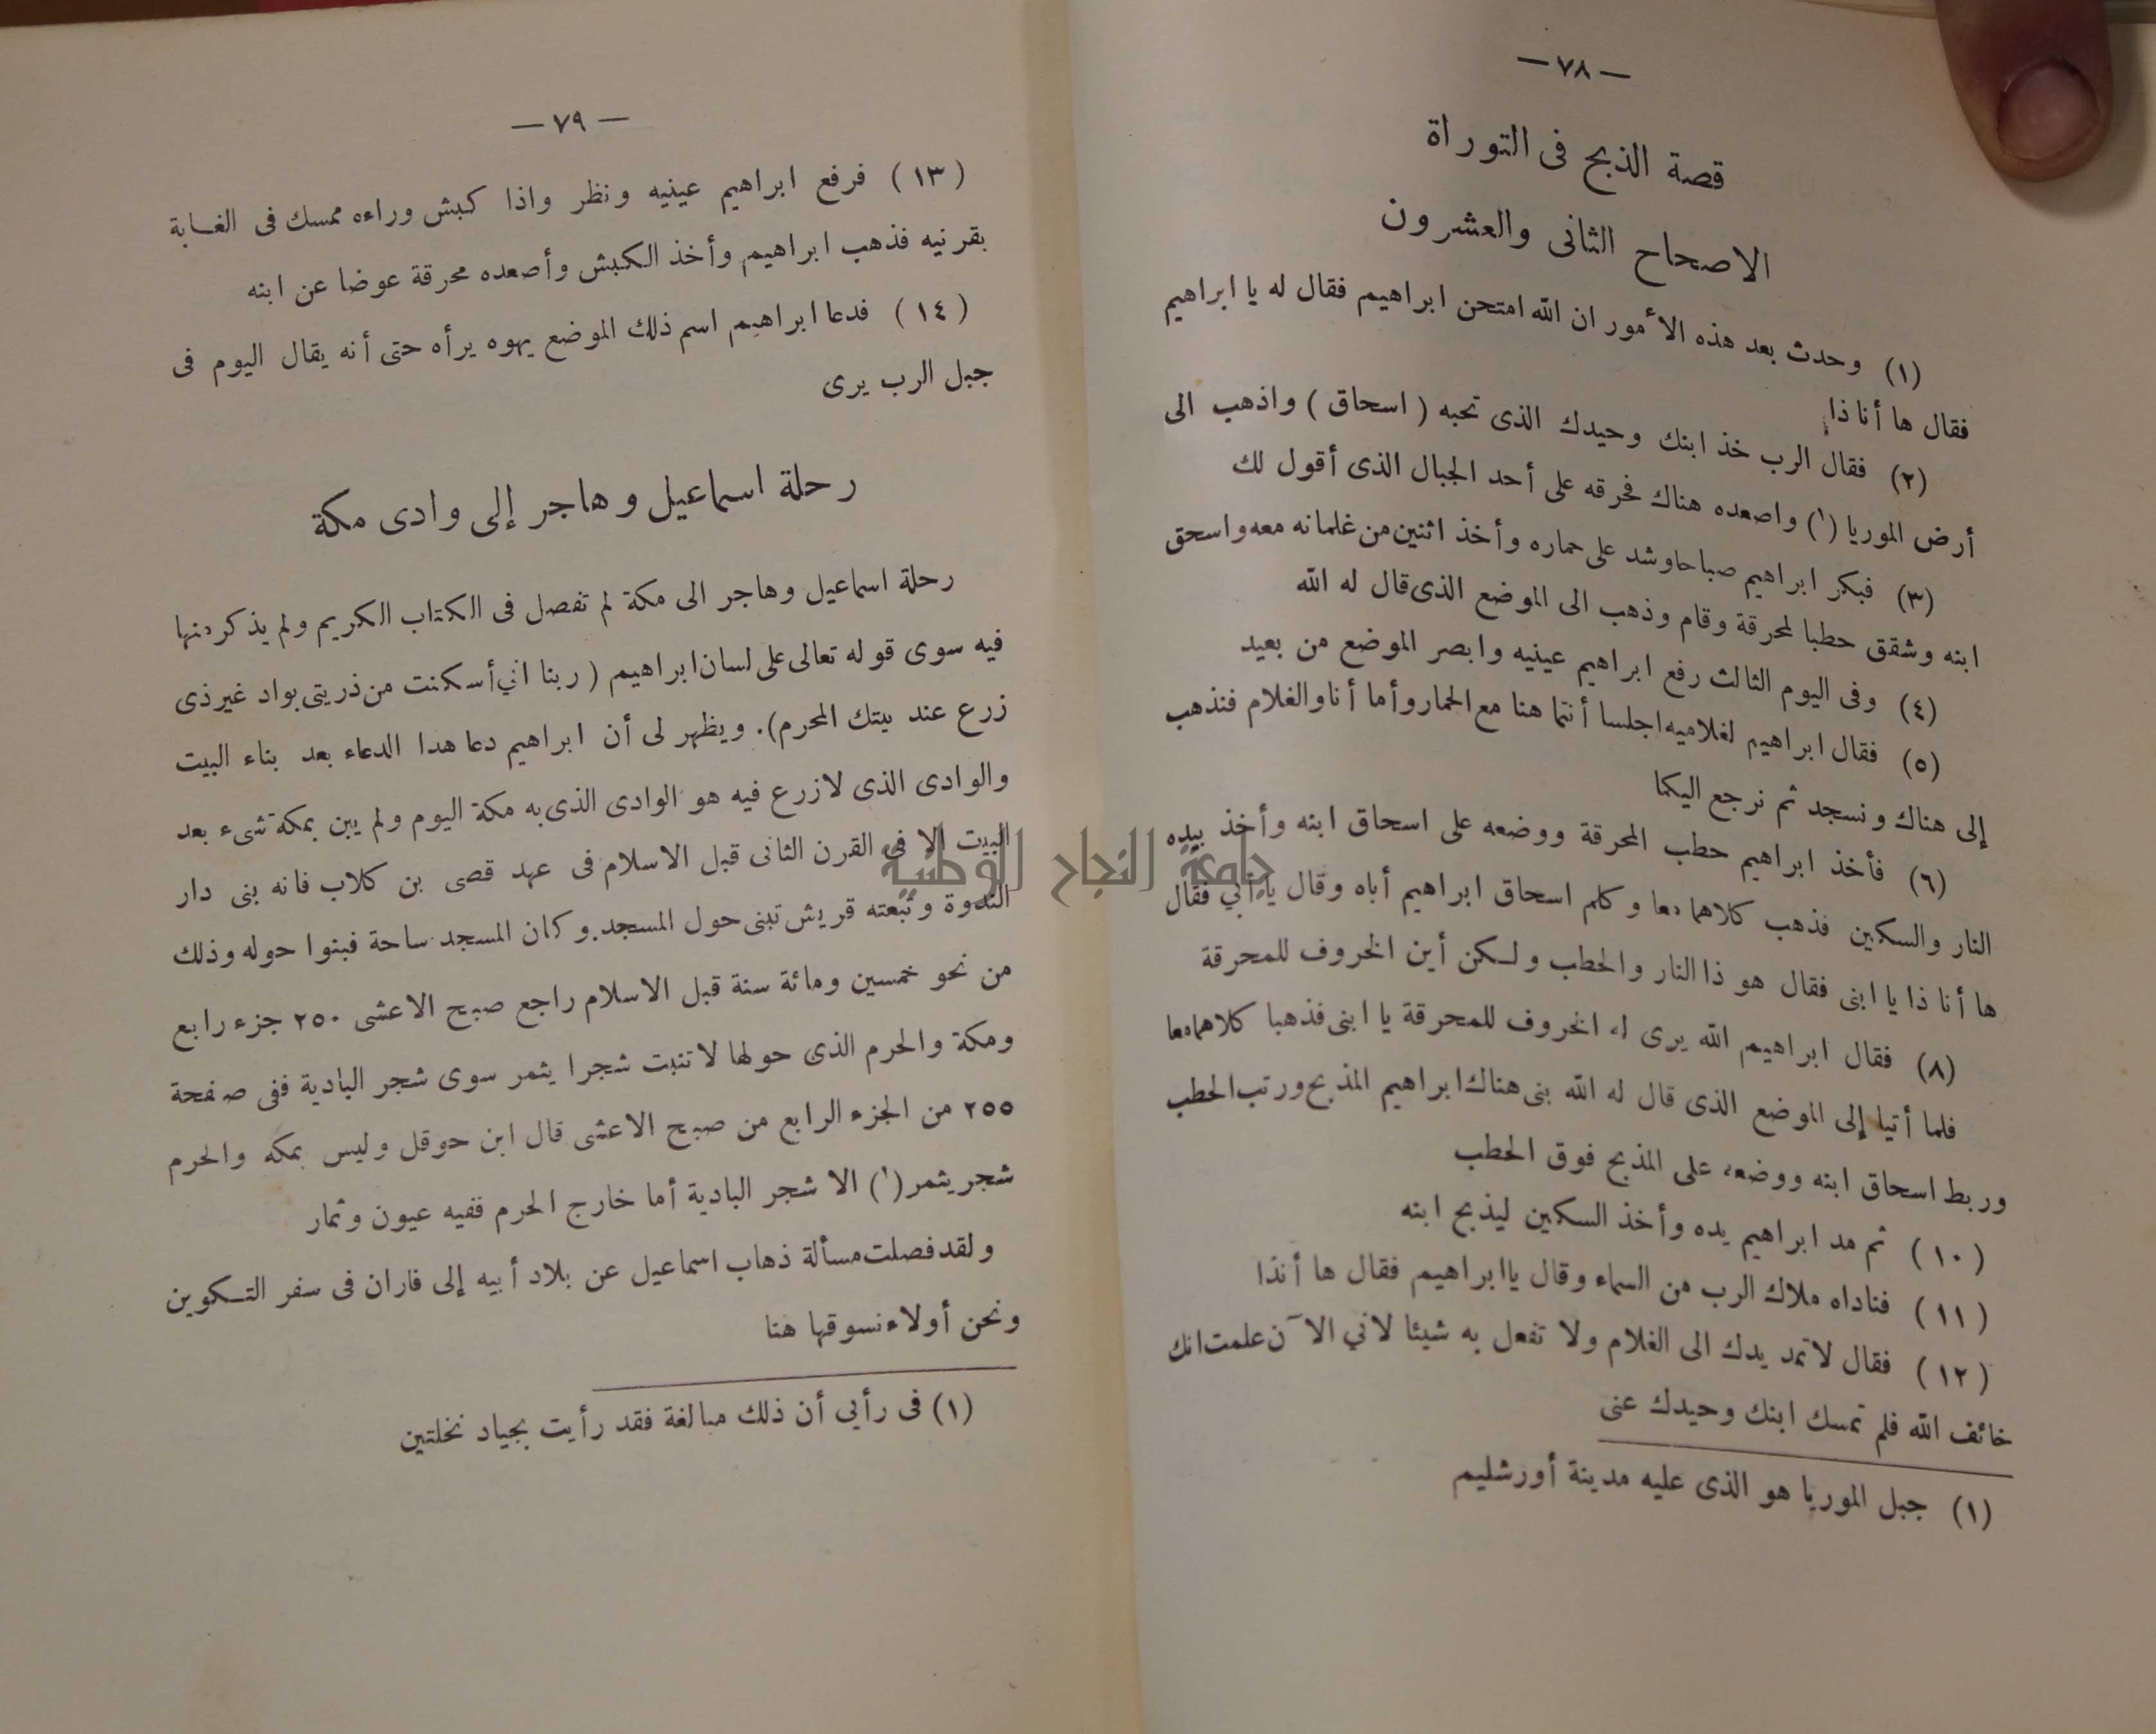 — ٧٨ —
قصة الذبح فى التوراة
الاصحاح الثانى والعشرون
(١) وحدث بعد هذه الأمور ان الله امتحن ابراهيم فقال له يا ابراهيم
فقال ها أنا ذا
(٢) فقال الرب خذ ابنك وحيدك الذى تحبه ( اسحاق ) واذهب الى
أرض الموريا (١) واصعده هناك فحرقه على أحد الجبال الذى أقول لك
(٣) فبكر ابراهيم صباحا وشد على حماره وأخذ اثنين من غلمانه معه واسحق
ابنه وشقق حطبا لمحرقة وقام وذهب الى الموضع الذى قال له الله
(٤) وفى اليوم الثالث رفع ابراهيم عينيه وابصر الموضع من بعيد
(٥) فقال ابراهيم لغلاميه اجلسا أنتما هنا مع الحمار وأما أنا والغلام فنذهب
إلى هناك ونسجد ثم نرجع اليكما
(٦) فأخذ ابراهيم حطب المحرقة ووضعه على اسحاق ابنه وأخذ بيده
النار والسكين فذهب كلاهما معا وكلم اسحاق ابراهيم أباه وقال يا أبي فقال
ها أنا ذا يا ابنى فقال هو ذا النار والحطب ولكن أين الخروف للمحرقة
(٨) فقال ابراهيم الله يرى له الخروف للمحرقة يا ابنى فذهبا كلاهما معا
فلما أتيا إلى الموضع الذى قال له الله بنى هناك ابراهيم المذبح ورتب الحطب
وربط اسحاق ابنه ووضعه على المذبح فوق الحطب
(١٠) ثم مد ابراهيم يده وأخذ السكين ليذبح ابنه
(١١) فناداه ملاك الرب من السماء وقال يا ابراهيم فقال ها أنذا
(١٢) فقال لا تمد يدك الى الغلام ولا تفعل به شيئا لاني الآن علمت انك
خائف الله فلم تمسك ابنك وحيدك عنى
(١) جبل الموريا هو الذى عليه مدينة أورشليم
— ٧٩ —
(١٣) فرفع ابراهيم عينيه ونظر واذا كبش وراءه ممسك فى الغابة
بقرنيه فذهب ابراهيم وأخذ الكبش وأصعده محرقة عوضا عن ابنه
(١٤) فدعا ابراهيم اسم ذلك الموضع يهوه يرأه حتى أنه يقال اليوم فى
جبل الرب يرى
رحلة اسماعيل وهاجر إلى وادى مكة
رحلة اسماعيل وهاجر الى مكة لم تفصل فى الكتاب الكريم ولم يذكر منها
فيه سوى قوله تعالى على لسان ابراهيم ( ربنا اني أسكنت من ذريتى بواد غير ذى
زرع عند بيتك المحرم). ويظهر لى أن ابراهيم دعا هدا الدعاء بعد بناء البيت
والوادى الذى لا زرع فيه هو الوادى الذى به مكة اليوم ولم يبن بمكة شىء بعد
البيت الا فى القرن الثانى قبل الاسلام فى عهد قصى بن كلاب فانه بنى دار
الندوة وتبعته قريش تبنى حول المسجد وكان المسجد ساحة فبنوا حوله وذلك
من نحو خمسين ومائة سنة قبل الاسلام راجع صبح الاعشى ٢٥٠ جزء رابع
ومكة والحرم الذى حولها لا تنبت شجرا يثمر سوى شجر البادية ففى صفحة
٢٥٥ من الجزء الرابع من صبح الاعشى قال ابن حوقل وليس بمكه والحرم
شجر يثمر (١) الا شجر البادية أما خارج الحرم ففيه عيون وثمار
ولقد فصلت مسألة ذهاب اسماعيل عن بلاد أبيه إلى فاران فى سفر التكوين
ونحن أولاء نسوقها هنا
(١) فى رأيي أن ذلك مبالغة فقد رأيت بجياد نخلتين
جامعة النجاح الوطنية